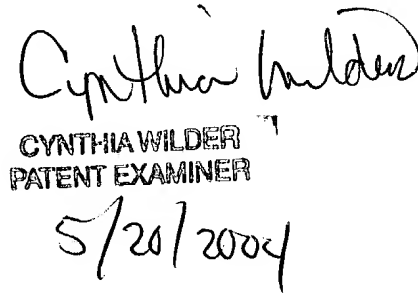 Cynthia Wilder
CYNTHIA WILDER
PATENT EXAMINER
5/20/2004